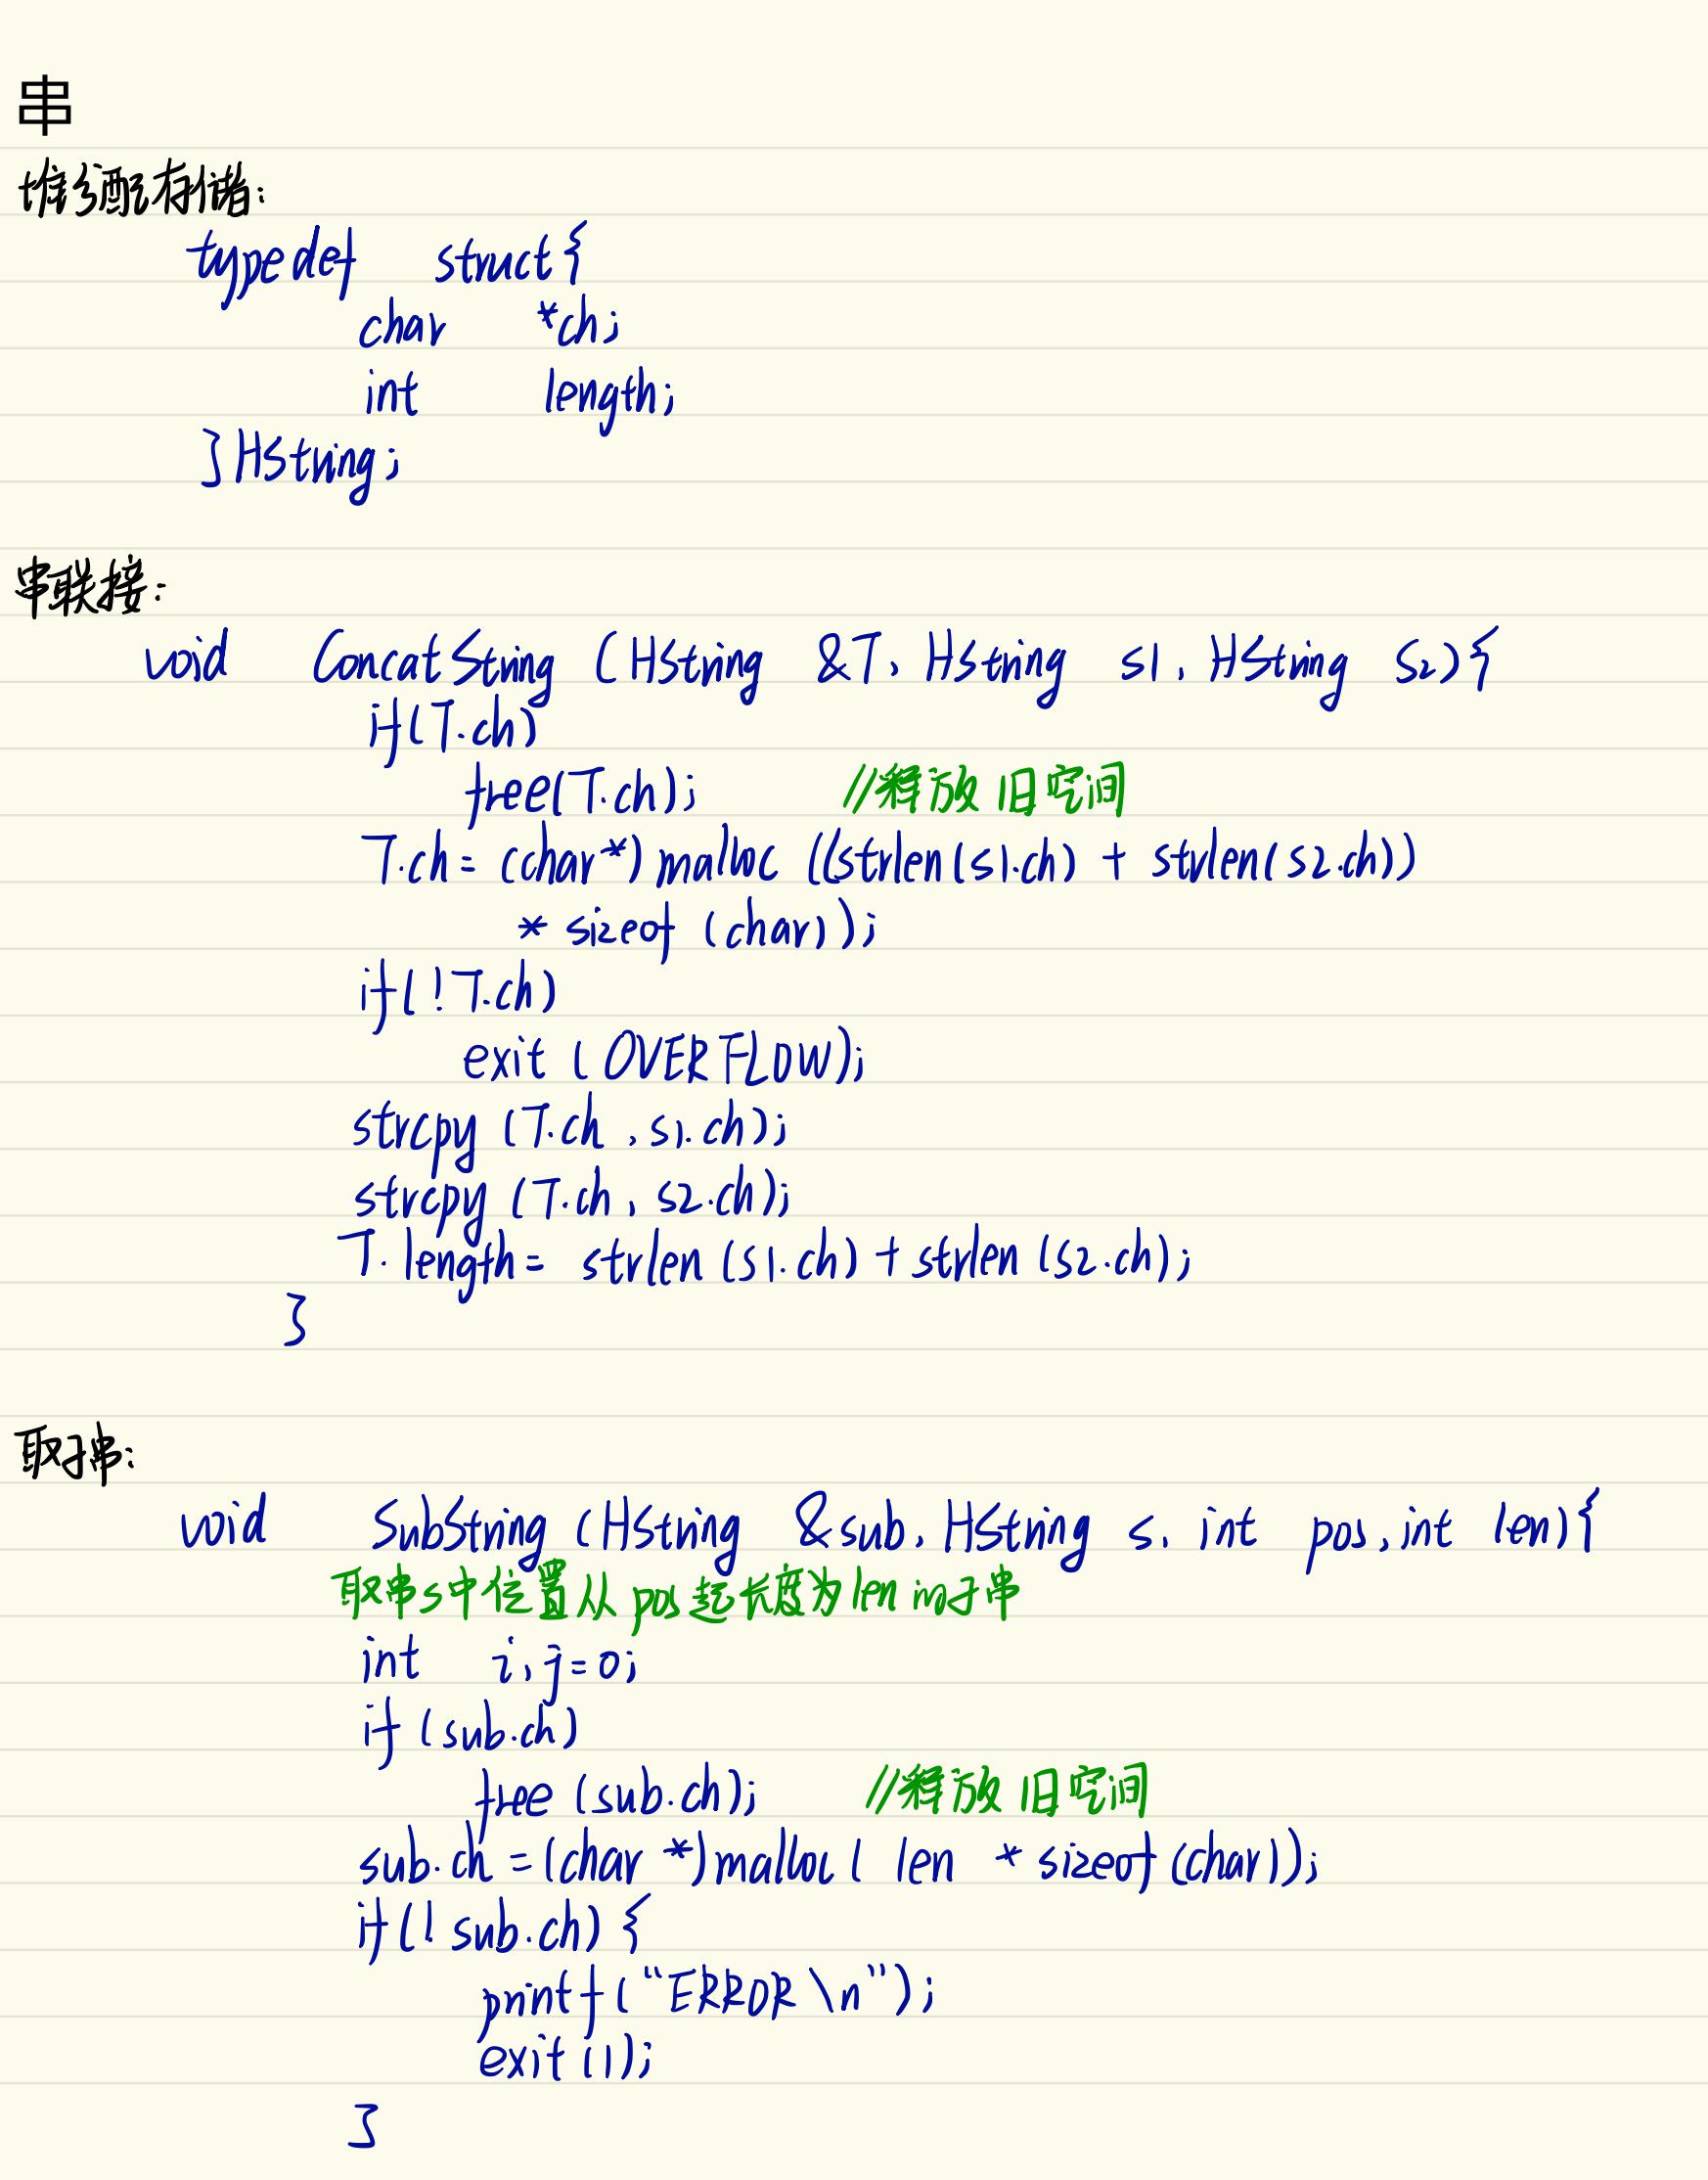 串
堆分配存储:
typedef struct{
char *ch;
int length;
}HString;
串联接:
void ConcatString (HString &T, HString s1, HString s2){
if(T.ch)
free(T.ch); //释放旧空间
T.ch = (char*) malloc ((strlen(s1.ch) + strlen(s2.ch))
* sizeof (char));
if(!T.ch)
exit (OVERFLOW);
strcpy (T.ch, s1.ch);
strcpy (T.ch, s2.ch);
T.length = strlen (s1.ch) + strlen (s2.ch);
}
取子串:
void SubString (HString &sub, HString s, int pos, int len){
取串s中位置从pos起长度为len的子串
int i, j=0;
if (sub.ch)
free (sub.ch); //释放旧空间
sub.ch = (char *) malloc ( len * sizeof (char));
if(! sub.ch) {
printf ("ERROR \n");
exit (1);
}